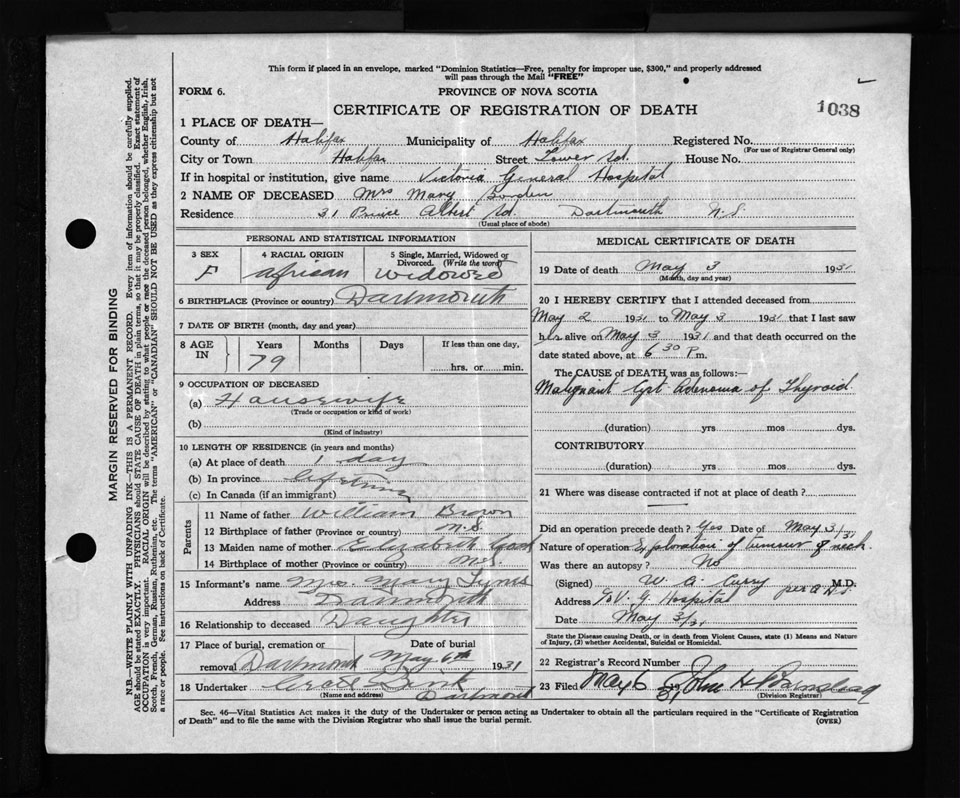 This form if placed in an envelope, marked "Dominion Statistics—Free, penalty for improper use, $300," and properly addressed
will pass through the Mail "FREE"
FORM 6. PROVINCE OF NOVA SCOTIA
CERTIFICATE OF REGISTRATION OF DEATH 1038
1 PLACE OF DEATH—
County of Halifax Municipality of Halifax Registered No.
(For use of Registrar General only)
City or Town Halifax Street Tower Rd. House No.
If in hospital or institution, give name Victoria General Hospital
2 NAME OF DECEASED Mrs Mary Borden
Residence 31 Prince Albert Rd Dartmouth N.S.
(Usual place of abode)
PERSONAL AND STATISTICAL INFORMATION
3 SEX 4 RACIAL ORIGIN 5 Single, Married, Widowed or
Divorced. (Write the word)
F African Widowed
6 BIRTHPLACE (Province or country) Dartmouth
7 DATE OF BIRTH (month, day and year)
8 AGE IN Years Months Days If less than one day,
79 hrs. or min.
9 OCCUPATION OF DECEASED
(a) Housewife
(Trade or occupation or kind of work)
(b)
(Kind of industry)
10 LENGTH OF RESIDENCE (in years and months)
(a) At place of death 1 day
(b) In province lifetime
(c) In Canada (if an immigrant)
Parents
11 Name of father William Brown
12 Birthplace of father (Province or country) N.S.
13 Maiden name of mother Elizabeth
14 Birthplace of mother (Province or country) N.S.
15 Informant's name Mrs. Mary Tynes
Address Dartmouth
16 Relationship to deceased Daughter
17 Place of burial, cremation or Date of burial
removal Dartmouth May 6th 1931
18 Undertaker Dartmouth
(Name and address)
MEDICAL CERTIFICATE OF DEATH
19 Date of death May 3 1931
(Month, day and year)
20 I HEREBY CERTIFY that I attended deceased from
May 2 1931 to May 3 1931 that I last saw
her alive on May 3 1931 and that death occurred on the
date stated above, at 6 30 P.m.
The CAUSE of DEATH was as follows:—
Malignant Cyst Adenoma of Thyroid
(duration) yrs mos dys.
CONTRIBUTORY
(duration) yrs mos dys.
21 Where was disease contracted if not at place of death?
Did an operation precede death? Yes Date of May 3/31
Nature of operation Exploration of tumour of neck.
Was there an autopsy? No
(Signed) W. A. Curry M.D.
Address V. G. Hospital
Date May 3/31
State the Disease causing Death, or in death from Violent Causes, state (1) Means and Nature
of Injury, (2) whether Accidental, Suicidal or Homicidal.
22 Registrar's Record Number
23 Filed May 6 31 John H
(Division Registrar)
Sec. 46—Vital Statistics Act makes it the duty of the Undertaker or person acting as Undertaker to obtain all the particulars required in the "Certificate of Registration
of Death" and to file the same with the Division Registrar who shall issue the burial permit. (OVER)
MARGIN RESERVED FOR BINDING
N.B.—WRITE PLAINLY WITH UNFADING INK—THIS IS A PERMANENT RECORD. Every item of information should be carefully supplied.
AGE should be stated EXACTLY. PHYSICIANS should STATE CAUSE OF DEATH in plain terms, so that it may be properly classified. Exact statement of
OCCUPATION is very important. RACIAL ORIGIN will be described by stating to what people or race the deceased person belonged, whether English, Irish,
Scotch, French, German, Russian, Ruthenian, etc. The terms "AMERICAN" or "CANADIAN" SHOULD NOT BE USED as they express citizenship but not
a race or people. See instructions on back of Certificate.